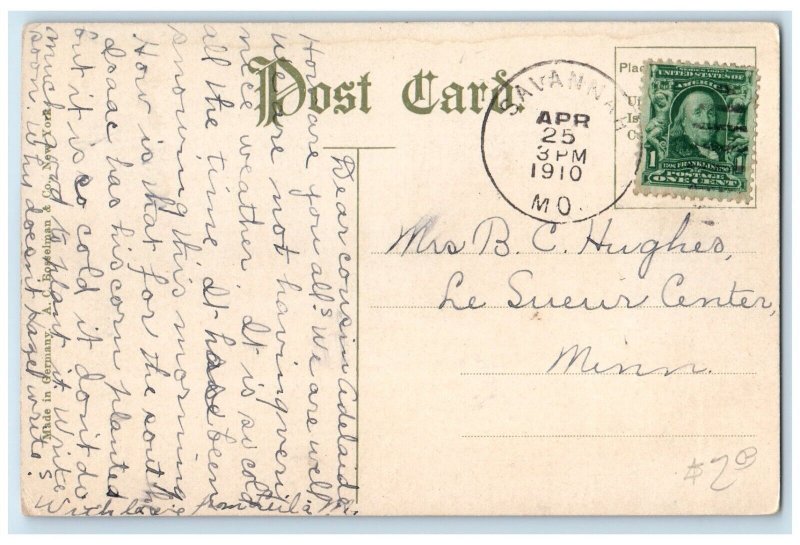 Post Card.
SAVANNAH
APR
25
3 PM
1910
MO.
Place
UNITED STATES OF
AMERICA
1 FRANKLIN 1
POSTAGE
ONE CENT
Mrs B. C. Hughes,
Le Sueur Center,
Minn.
$7
Made in Germany. A. C. Bosselman & Co., New York.
Dear cousin Adelaide
How are you all? We are well.
We are not having very
nice weather. It is so cold
all the time. It has been
snowing this morning
How is that for the south
Isaac has his corn planted
but it is so cold it don't do
much good to plant it. Write
soon. Why doesn't Hazel write?
With love from Leila M.